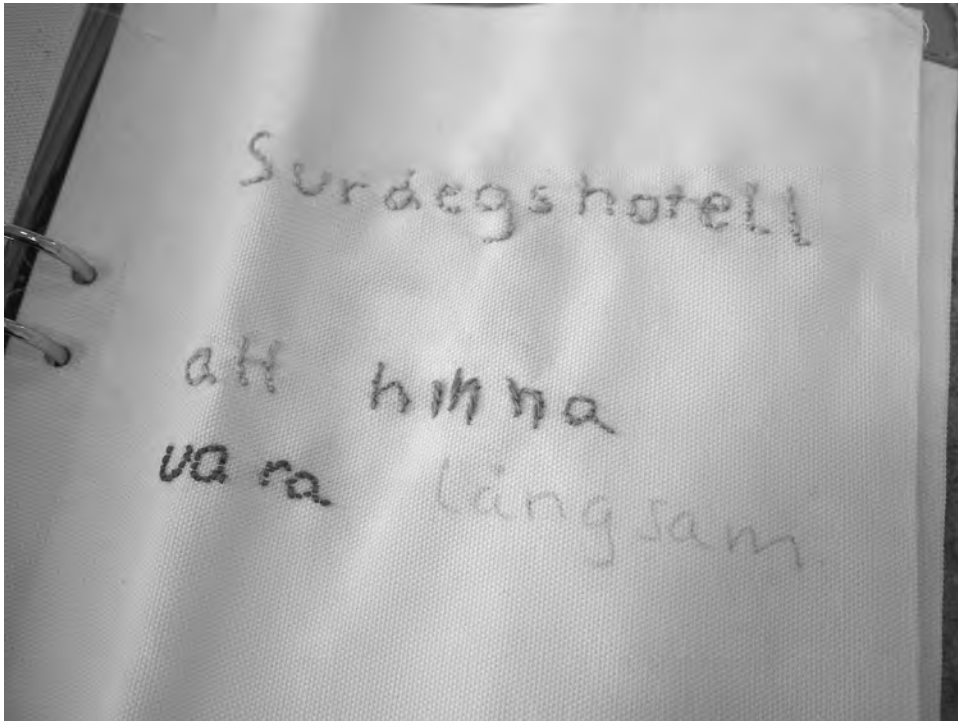 Surdegshotell
att hinna
vara långsam